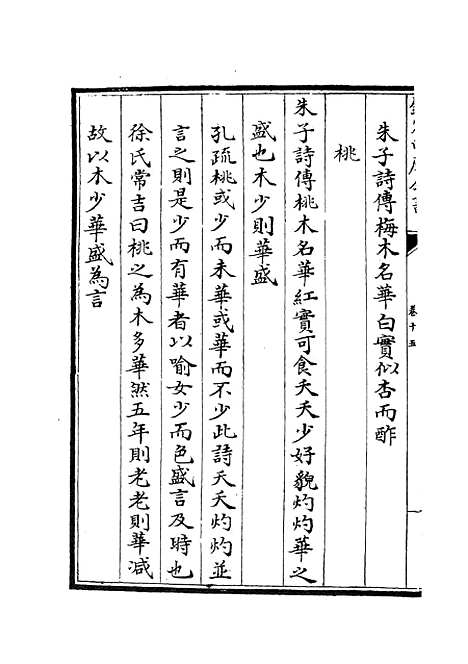 朱子詩傳梅木名華白實似杏而酢
桃
朱子詩傳桃木名華紅實可食夭夭少好貌灼灼華之
盛也木少則華盛
孔疏桃或少而未華或華而不少此詩夭夭灼灼並
言之則是少而有華者以喻女少而色盛言及時也
徐氏常吉曰桃之為木多華然五年則老老則華減
故以木少華盛為言
卷十五